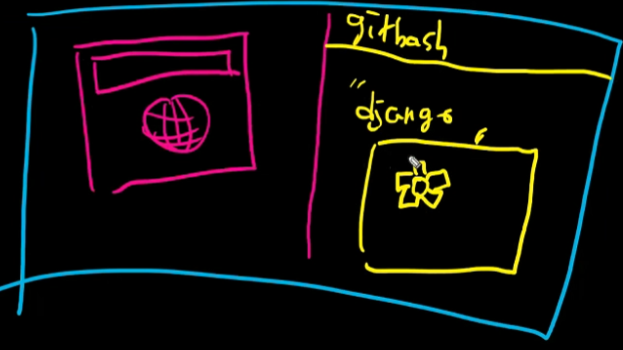 gitbash
"django